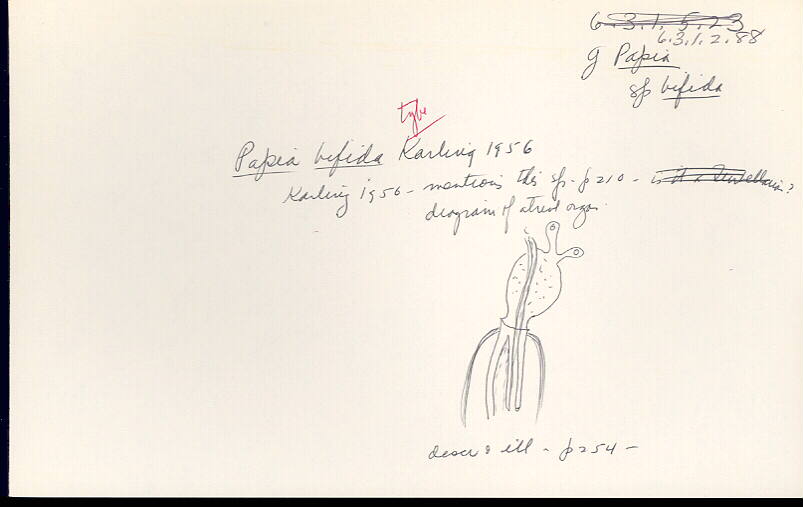 6.3.1.5.23
6.3.1.2.88
g Papia
sp bifida
type
Papia bifida Karling 1956
Karling 1956 - mentions this sp. p 210 - is it a Turbellarian?
diagram of atrial organ.
descr & ill - p 254 -